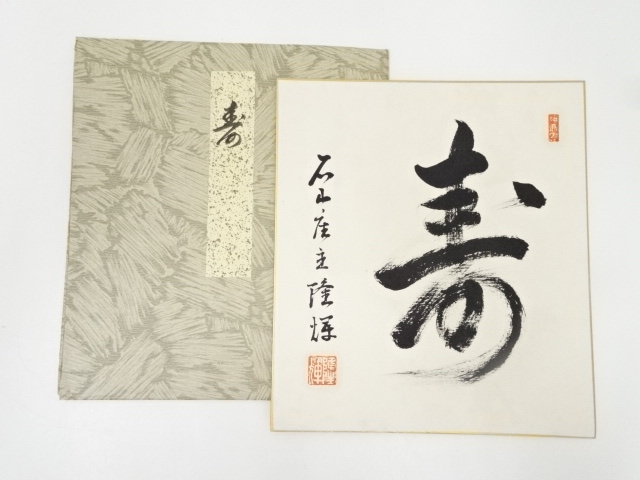 寿
寿
石山座主隆輝